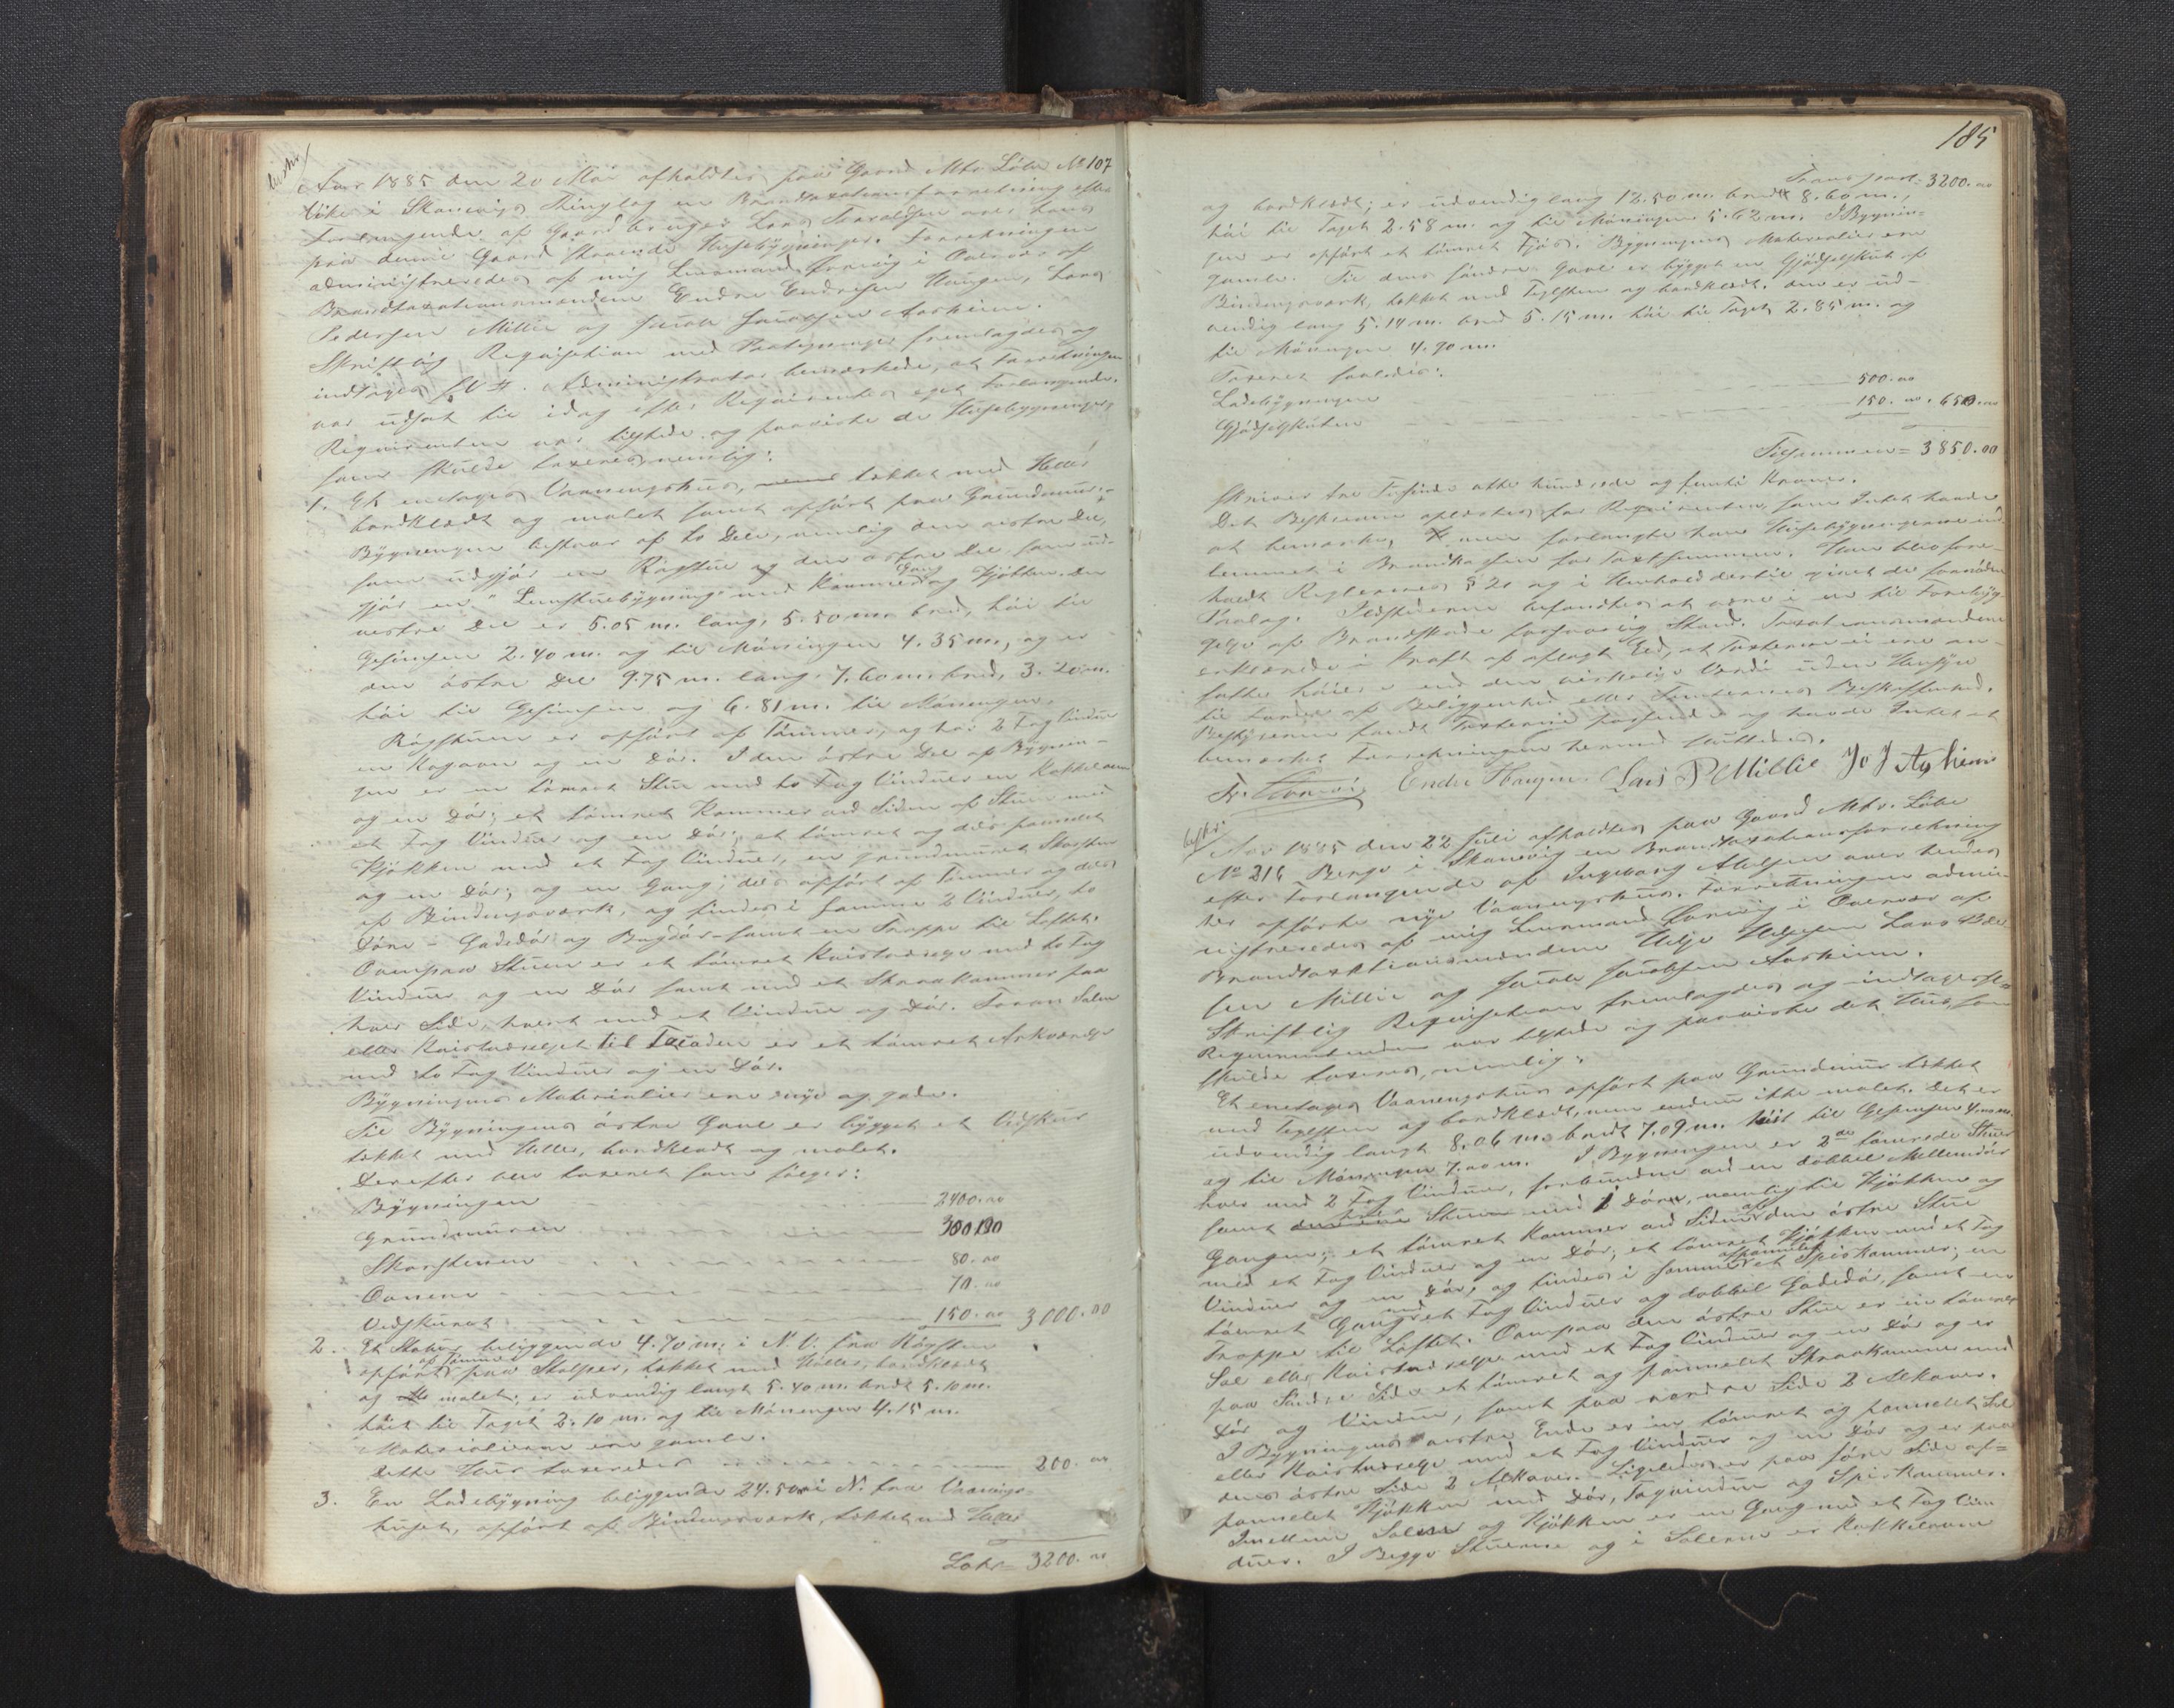 beskr.
Aar 1885 den 20 Mai afholdtes paa Gaard Mtr Löbe No 107
i Skonevigs Thinglag en Brandtaxationsforretning efter
Forlangende af Gaardbruger Lars Torvaldsen over hans
paa denne Gaard staaende Husebygninger. Forretningen
administreredes af mig Lensmand i Oelvær af
Brandtaxationsmændene Endre Endresen Haugen, Lars
Pedersen Millie og Jacob Jacobsen Aasheim.
Skriftlig Reqvisition med Paategninger fremlagdes og
indtages. Administrator bemærkede, at Forretningen
var udsat til idag efter Reqvirentens eget Forlangende.
Reqvirenten var tilstede og paaviste de Husebygninger,
som skulde taxeres, nemlig:
1. Et enetages Vaaningshus, tækket med Heller
bordklædt og malet samt opført paa Grundmur.
Bygningen bestaar af to Dele, nemlig den vestre Del,
som udgjør en Røgstue og den østre Del som ud-
gjør en Bygning med Kammer, Gang og Kjøkken. Den
vestre Del er 5.05 m. lang, 5.50 m. bred, høi til
Gesimsen 2.40 m. og til Møningen 4.35 m., og er
den østre Del 9.75 m. lang, 7.60 m. bred, 3.20 m.
høi til Gesimsen og 6.81 m. til Møningen.
Røgstuen er opført af Tømmer, og har 2 Fag Vinduer
en Kogeovn og en Dør. I den østre Del af Bygnin-
gen er en tømret Stue med to Fag Vinduer en Kakkelovn
og en Dør; et tømret Kammer ved Siden af Stuen med
et Fag Vinduer og en Dør; et tømret og dels panelet
Kjøkken med et Fag Vinduer, en grundmuret Skorsten
og en Dør; og en Gang, dels opført af Tømmer og dels
af Bindingsværk, og findes i samme 2 Vinduer, to
Døre - Gadedør og Bagdør - samt en Trappe til Loftet.
Ovenpaa Stuen er et tømret Kvistværelse med to Fag
Vinduer og en Dør samt med et Skraakammer paa
hver Side, hvert med et Vindue og Dør. Foran Salen
eller Kvistværelset til Facaden er et tømret Arkværelse
med to Fag Vinduer og en Dør.
Bygningens Materialier ere nye og gode.
Til Bygningens østre Gavl er bygget et Vedskur
tækket med Heller, bordklædt og malet.
Derefter blev taxeret som følger:
Bygningen 2400.00
Grundmuren 300.00
Skorstenen 80.00
Ovnene 70.00
Vedskuret 150.00 3000.00
2. Et Stabur beliggende 4.70 m. i N.V. fra Røgstuen
opført af Tømmer paa Stolper, tækket med Heller, bordklædt
og malet; er udvendig langt 5.40 m. bredt 5.10 m.
høit til Taget 2.10 m. og til Møningen 4.15 m.
Materialierne ere gamle.
Dette Hus taxeredes 200.00
3. En Ladebygning beliggende 24.50 m i N. fra Vaanings-
huset, opført af Bindingsværk, tækket med Heller
Lats 3200.00
185
Transport: 3200.00
og bordklædt; er udvendig lang 12.50 m. bredt 8.60 m.,
høi til Taget 2.58 m. og til Møningen 5.62 m. I Bygnin-
gen er opført et tømret Fjøs. Bygningens Materialier ere
gamle. Til dens søndre Gavl er bygget en Gjødselskut af
Bindingsværk, tækket med Teglsten og bordklædt. Den er ud-
vendig lang 5.14 m. bred 5.15 m. høi til Taget 2.85 m. og
til Møningen 4.90 m.
Taxeret saaledes:
Ladebygningen 500.00
Gjødselskuten 150.00. 650.00
Tilsammen = 3850.00
skriver tre Tusinde otte hundrede og femti Kroner.
Det Beskrevne oplæstes for Reqvirenten, som Intet havde
at bemærke, men forlangte han Husebygningerne ind-
lemmet i Brandkassen for Taxtsummen. Han blev fore-
holdt Reglernes § 20 og i Henhold dertil givet de fornødne
Paalæg. Ildstederne befandtes at være i en til Forebyg-
gelse af Brandskade forsvarlig Stand. Taxationsmændene
erklærede i Kraft af aflagt Ed, at Taxterne ei ere an-
satte høiere end den virkelige Værdi uden Hensyn
til Fordel af Beliggenhed eller Tomternes Beskaffenhed.
Bestyreren fandt Taxterne passende og havde Intet at
bemærke. Forretningen hermed sluttedes.
Endre Haugen. Lars P Millie Jo J Asheim
beskr.
Aar 1885 den 22 Juli afholdtes paa Gaard Mtr. Löbe
No 216 Berge i Skonevig en Brandtaxationsforretning
efter Forlangende af Ingeborg over hendes
der opførte nye Vaaningshus. Forretningen admi-
nistreredes af mig Lensmand i Oelvær af
Brandtaxtationsmændene Helje Heljesen Lars Peder-
sen Millie og Jacob Jacobsen Aasheim.
Skriftlig Reqvisition fremlagdes og indtages
Reqvirentinden var tilstede og paaviste det Hus, som
skulde taxeres, nemlig:
Et enetages Vaaningshus opført paa Grundmur tækket
med Teglsten og bordklædt, men endnu ikke malet. Det er
udvendig langt 8.06 m. bredt 7.09 m. høit til Gesimsen
og til Møningen 7.00 m. I Bygningen er 2de tømrede Stuer
hver med 2 Fag Vinduer, forbundne ved en dobbel Mellemdør
samt Stuen med 1 Døre, nemlig til Kjøkken og
Gangen; et tømret Kammer ved Siden af den østre Stue
med et Fag Vinduer og en Dør; et tømret Kjøkken med et Fag
Vinduer og en Dør, og findes i samme et afpanelet Spiskammer; en
tømret Gang med et Fag Vinduer og dobbel Gadedør, samt en
Trappe til Loftet. Ovenpaa den østre Stue er en tømret
Sal eller Kvistværelse med et Fag Vinduer og en Dør og er
paa Søndre Side et tømret og panelet Skraakammer med
Dør og Vindue, samt paa nordre Side 2 Alkover.
I Bygningens vestre Ende er en tømret og panelet Sal
eller Kvistværelse med et Fag Vinduer og en Dør og er paa
dens østre Side 2 Alkover. Ligeledes er paa søre Side af-
panelet Kjøkken med Dør, Fagvindue og Spiskammer.
Imellem Salene og Kjøkken er en Gang med et Fag Vin-
duer. I Begge Stuerne og i Salene er Kakkelovne